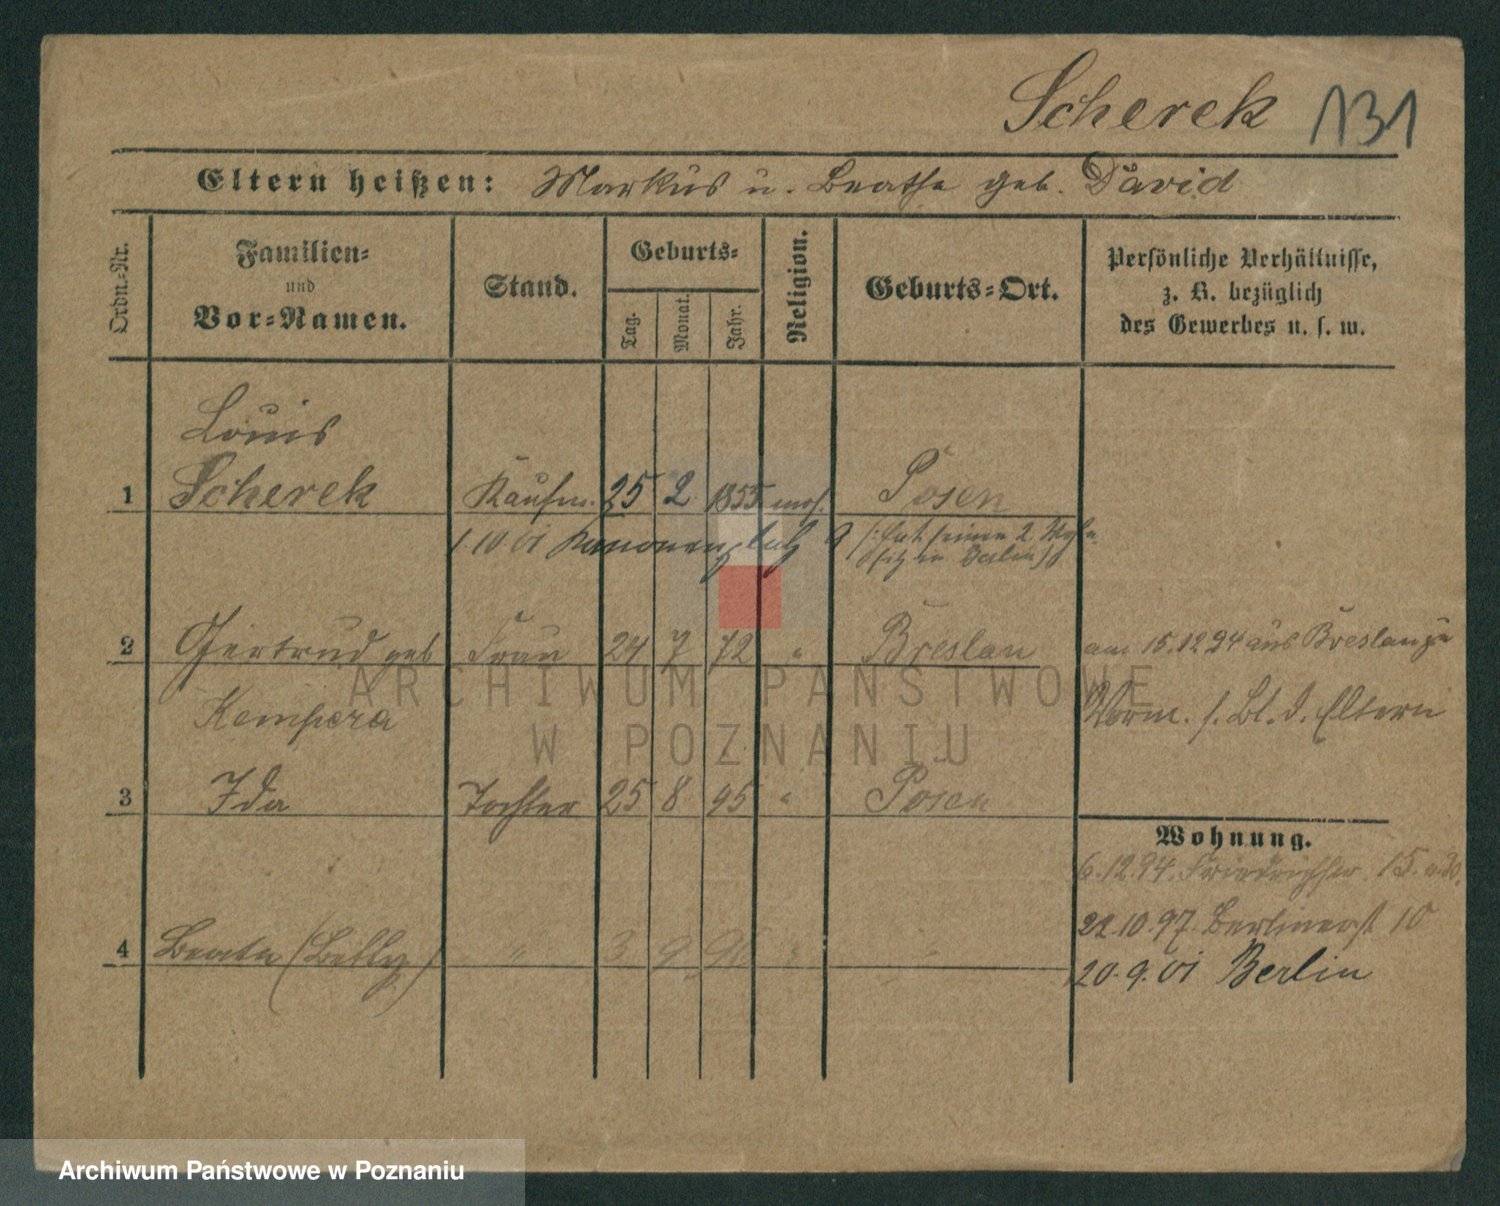 Scherek 131
Eltern heißen: Markus u. Beathe geb. David
Ordn.-Nr.
Familien-
und
Vor-Namen.
Stand.
Geburts-
Tag.
Monat.
Jahr.
Religion.
Geburts-Ort.
Persönliche Verhältnisse,
z. B. bezüglich
des Gewerbes u. s. w.
Louis
1 Scherek Kaufm. 25 2 1855 mos. Posen
1.10.01 Kanonenplatz 9 (: hat seinen 2. Wohn-
sitz in Berlin)
2 Gertrud geb Frau 24 7 72 " Breslau am 15.12 94 aus Breslau
Kempera Vorm. s. Bl. d. Eltern
3 Ida Tochter 25 8 95 " Posen
Wohnung.
6.12.94. Friedrichstr. 15.
22.10.97. Berlinerst 10
4 Beate (Belly) " 3 9 96 " "
20.9.01 Berlin
ARCHIWUM PAŃSTWOWE
W POZNANIU
Archiwum Państwowe w Poznaniu